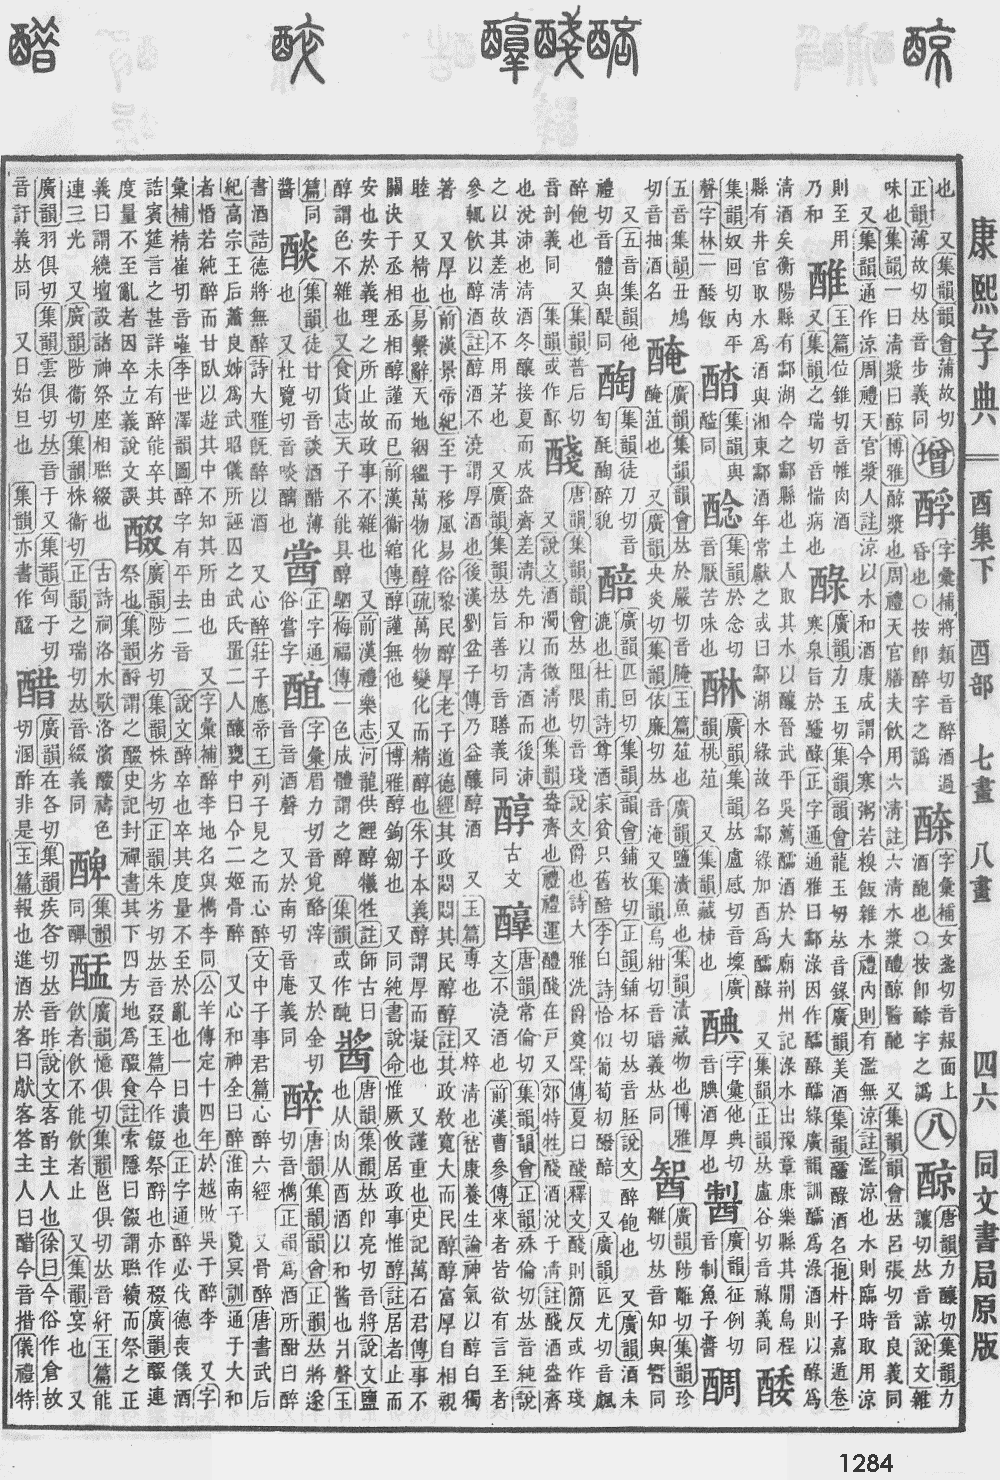 醋 醉 醇醆醅 醇
康熙字典 酉集下 酉部 七畫 八畫 四六 同文書局原版
也 又集韻會蒲故切
正韻薄故切𠀤音步義同
增
酹
字彙補將類切音醉酒過
昏也○按卽醉字之譌
酒酏也○按卽字之譌
字彙補女盍切音報面上
八
醇
唐韻力釀切集韻力
讓切𠀤音諒說文雜
味也集韻一曰清漿曰醇博雅醇漿也周禮天官膳夫飲用六清註六清水漿醴醇醫酏 又集韻韻會𠀤呂張切音良義同
又集韻通作涼周禮天官漿人註涼以水和酒康成謂今寒粥若糗飯雜水禮內則有濫無涼註濫涼也水則臨時取用涼
則至用
乃和
醀
玉篇位錐切音帷肉酒
又集韻之瑞切音惴病也
醁
廣韻力玉切集韻韻會龍玉切𠀤音錄廣韻美酒集韻醽醁酒名抱朴子嘉遁卷
寒泉旨於醽醁正字通通雅曰酃淥因作醽醁醽綠廣韻訓醽爲淥酒則以醁爲
清酒矣衡陽縣有酃湖今之酃縣也土人取其水以釀晉武平吳薦醽酒於大廟荆州記淥水出豫章康樂縣其閒烏程
縣有井官取水爲酒與湘東酃酒年常獻之或曰酃湖水綠故名酃綠加酉爲醽醁 又集韻正韻𠀤盧谷切音祿義同
醅
集韻奴回切內平
聲字林一醅飯
醓
醓同
集韻與
醶
集韻於念切
音厭苦味也
醂
廣韻集韻𠀤盧感切音壈廣
韻桃菹 又集韻藏柹也
醏
字彙他典切
音腆酒厚也
製
廣韻征例切
音制魚子醬
醄
五音集韻丑鳩
切音抽酒名
醃
廣韻集韻韻會𠀤於嚴切音腌玉篇菹也 廣韻鹽漬魚也集韻漬藏物也博雅
醃菹也 又廣韻央炎切集韻依廉切𠀤音淹又集韻烏紺切音暗義𠀤同
廣韻陟離切集韻珍
離切𠀤音知與䣽同
又五音集韻他
禮切音體與醍同
醄
集韻徒刀切音
匋酕醄醉貌
醅
廣韻匹回切集韻韻會鋪枚切正韻鋪杯切𠀤音胚說文醉飽也 又廣韻酒未
漉也杜甫詩尊酒家貧只舊醅李白詩恰似葡萄初醱醅 又廣韻匹尤切音䬌
醉飽也 又集韻普后切
音剖義同 集韻或作㕻
醆
唐韻集韻韻會𠀤阻限切音琖說文爵也詩大雅洗爵奠斝傳夏曰醆釋文醆則簡反或作琖
又說文酒濁而微清也集韻盎齊也禮禮運醴醆在戶又郊特牲醆酒涗于清註醆酒盎齊
也涗沛也清酒冬釀接夏而成盎齊差清先和以清酒而後沛
之以其差清故不用茅也 又廣韻集韻𠀤旨善切音膳義同
醇
古文
𨢌
唐韻常倫切集韻韻會正韻殊倫切𠀤音純說
文不澆酒也前漢曹參傳來者皆欲有言至者
參輒飲以醇酒註醇酒不澆謂厚酒也後漢劉盆子傳乃益釀醇酒 又玉篇專也 又粹淸也嵇康養生論神氣以醇白獨
著 又厚也前漢景帝紀至于移風易俗黎民醇厚老子道德經其政悶悶其民醇醇註其政敎寬大而民醇醇富厚自相親
睦 又精也易繫辭天地絪縕萬物化醇疏萬物變化而精醇也朱子本義醇謂厚而凝也 又謹重也史記萬石君傳事不
關決于丞相丞相醇謹而已前漢衞綰傳醇謹無他 又博雅醇鉤劒也 又同純書說命惟厥攸居政事惟醇註居者止而
安也安於義理之所止故政事不雜也 又前漢禮樂志河龍供鯉醇犧牲註師古曰
醇謂色不雜也又食貨志天子不能具醇駟梅福傳一色成體謂之醇 集韻或作䣩
醬
唐韻集韻𠀤卽亮切音將說文鹽
也从肉从酉酒以和醬也爿聲玉
篇同
醬
醈
集韻徒甘切音談酒醋薄
也 又杜覽切音啖醨也
甞
正字通
俗嘗字
䣼
字彙眉力切音覓酪滓 又於金切
音音酒聲 又於南切音庵義同
醉
唐韻集韻韻會正韻𠀤將遂
切音檇正韻爲酒所酣曰醉
書酒誥德將無醉詩大雅旣醉以酒 又心醉莊子應帝王列子見之而心醉文中子事君篇心醉六經 又骨醉唐書武后
紀高宗王后蕭良娣爲武昭儀所誣囚之武氏置二人釀甕中曰令二姬骨醉 又心和神全曰醉淮南子覽冥訓通于大和
者惛若純醉而甘臥以遊其中不知其所由也 又字彙補醉李地名與檇李同公羊傳定十四年於越敗吳于醉李 又字
彙補精崔切音嶉李世澤韻圖醉字有平去二音 說文醉卒也卒其度量不至於亂也一曰潰也正字通醉必伐德喪儀酒
誥賓筵言之甚詳未有醉能卒其
度量不至亂者因卒立義說文誤
醊
廣韻陟劣切集韻株劣切正韻朱劣切𠀤音叕玉篇今作餟祭酹也亦作裰廣韻醊連
祭也集韻酹謂之醊史記封禪書其下四方地爲醊食註索隱曰餟謂聯續而祭之正
義曰謂繞壇設諸神祭座相聯綴也 古詩祠洛水歌洛濱醊禱色
連三光 又廣韻陟衞切集韻株衞切正韻之瑞切𠀤音綴義同
䤗
集韻
同䤗
䣿
廣韻憶俱切集韻邕俱切𠀤音紆玉篇能
飲者飲不能飲者止 又集韻宴也 又
廣韻羽俱切集韻雲俱切𠀤音于又集韻訇于切
音訏義𠀤同 又日始旦也 集韻亦書作醘
醋
廣韻在各切集韻疾各切𠀤音昨說文客酌主人也徐曰今俗作倉故
切溷酢非是玉篇報也進酒於客曰獻客答主人曰醋今音措儀禮特
1284